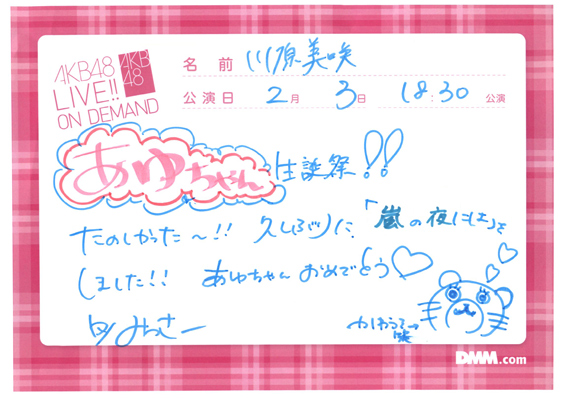 AKB48
LIVE!!
ON DEMAND
AKB
48
名前 川原美咲
公演日 2月 3日 18:30 公演
あゆちゃん生誕祭!!
たのしかった〜!! 久しぶりに、「嵐の夜には」を
しました!! あゆちゃんおめでとう♡
みさきー
DMM.com